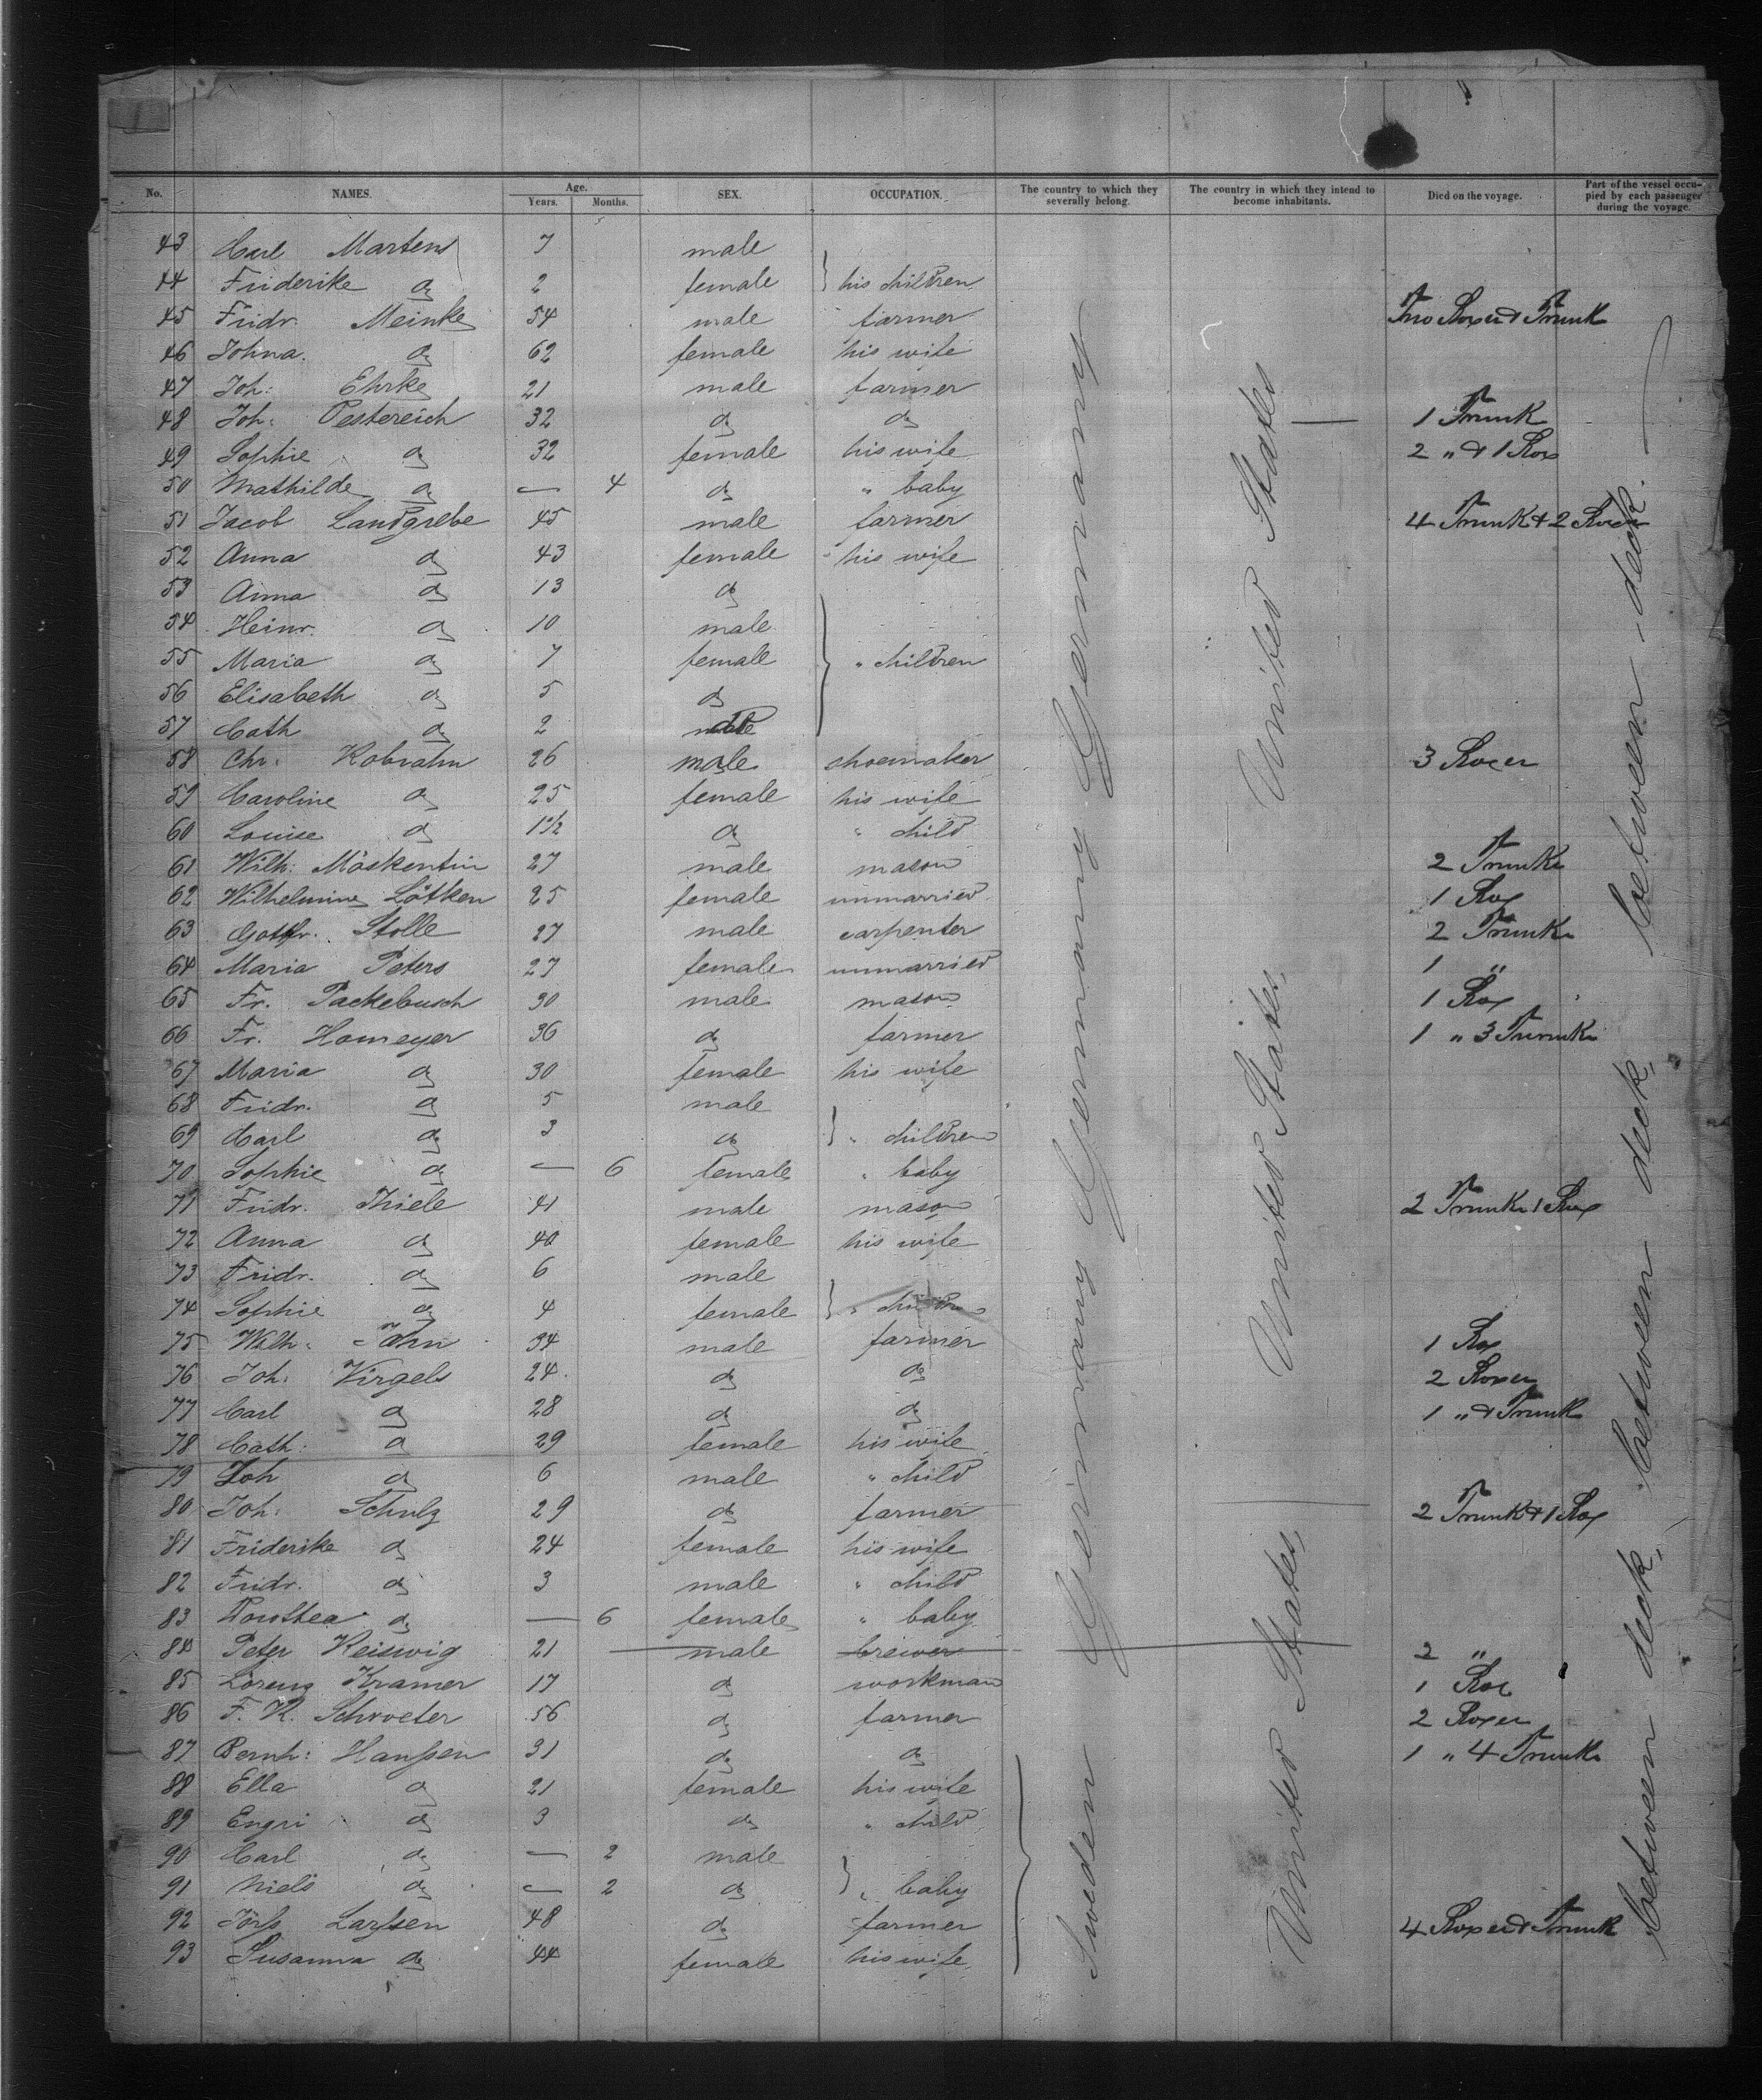 No. NAMES. Age. Years. Months. SEX. OCCUPATION. The country to which they severally belong. The country in which they intend to become inhabitants. Died on the voyage. Part of the vessel occupied by each passenger during the voyage.
43 Carl Martens 7 male
44 Friderike do 2 female } his children
45 Fridr. Meinke 54 male farmer Two Boxes & Trunk
46 Johna. do 62 female his wife
47 Joh: Ehrke 21 male farmer
48 Joh: Oestereich 32 do do 1 Trunk
49 Sophie do 32 female his wife 2 " & 1 Box
50 Mathilde do — 4 do " baby
51 Jacob Landgrebe 45 male farmer 4 Trunk & 2 Boxes
52 Anna do 43 female his wife
53 Anna do 13 do
54 Heinr. do 10 male
55 Maria do 7 female } " children
56 Elisabeth do 5 do
57 Cath do 2
58 Chr: Kobrahn 26 male shoemaker 3 Boxer
59 Caroline do 25 female his wife
60 Louise do 1 1/2 do " child
61 Wilh: Möskentin 27 male mason 2 Trunks
62 Wilhelmine Lötken 25 female unmarried 1 Box
63 Gottfr. Stolle 27 male carpenter 2 Trunks
64 Maria Peters 27 female unmarried 1 "
65 Fr. Packebusch 30 male mason 1 Box
66 Fr. Homeyer 36 do farmer 1 " 3 Trunks
67 Maria do 30 female his wife
68 Fridr. do 5 male
69 Carl do 3 do } " children
70 Sophie do — 6 female " baby
71 Fridr. Thiele 41 male mason 2 Trunks 1 Box
72 Anna do 40 female his wife
73 Fridr. do 6 male
74 Sophie do 4 female } " children
75 Wilh: John 34 male farmer 1 Box
76 Joh: Virgels 24 do do 2 Boxer
77 Carl do 28 do do 1 " & Trunk
78 Cath: do 29 female his wife
79 Joh do 6 male " child
80 Joh: Schulz 29 do farmer 2 Trunk & 1 Box
81 Friderike do 24 female his wife
82 Fridr. do 3 male " child
83 Dorothea do — 6 female " baby
84 Peter Keiswig 21 male brewer 2 "
85 Lorenz Kramer 17 do workman 1 Box
86 F. K. Schroeter 56 do farmer 2 Boxer
87 Bernh: Hanssen 31 do do 1 " 4 Trunks
88 Ella do 21 female his wife
89 Engri do 3 do " child
90 Carl do — 2 male
91 Niels do — 2 do } " baby
92 Larssen 48 do farmer 4 Boxer & Trunk
93 Susanna do 44 female his wife
Germany Germany Germany Germany
Sweden
United States United States United States
between deck, between deck, between deck, between-deck.